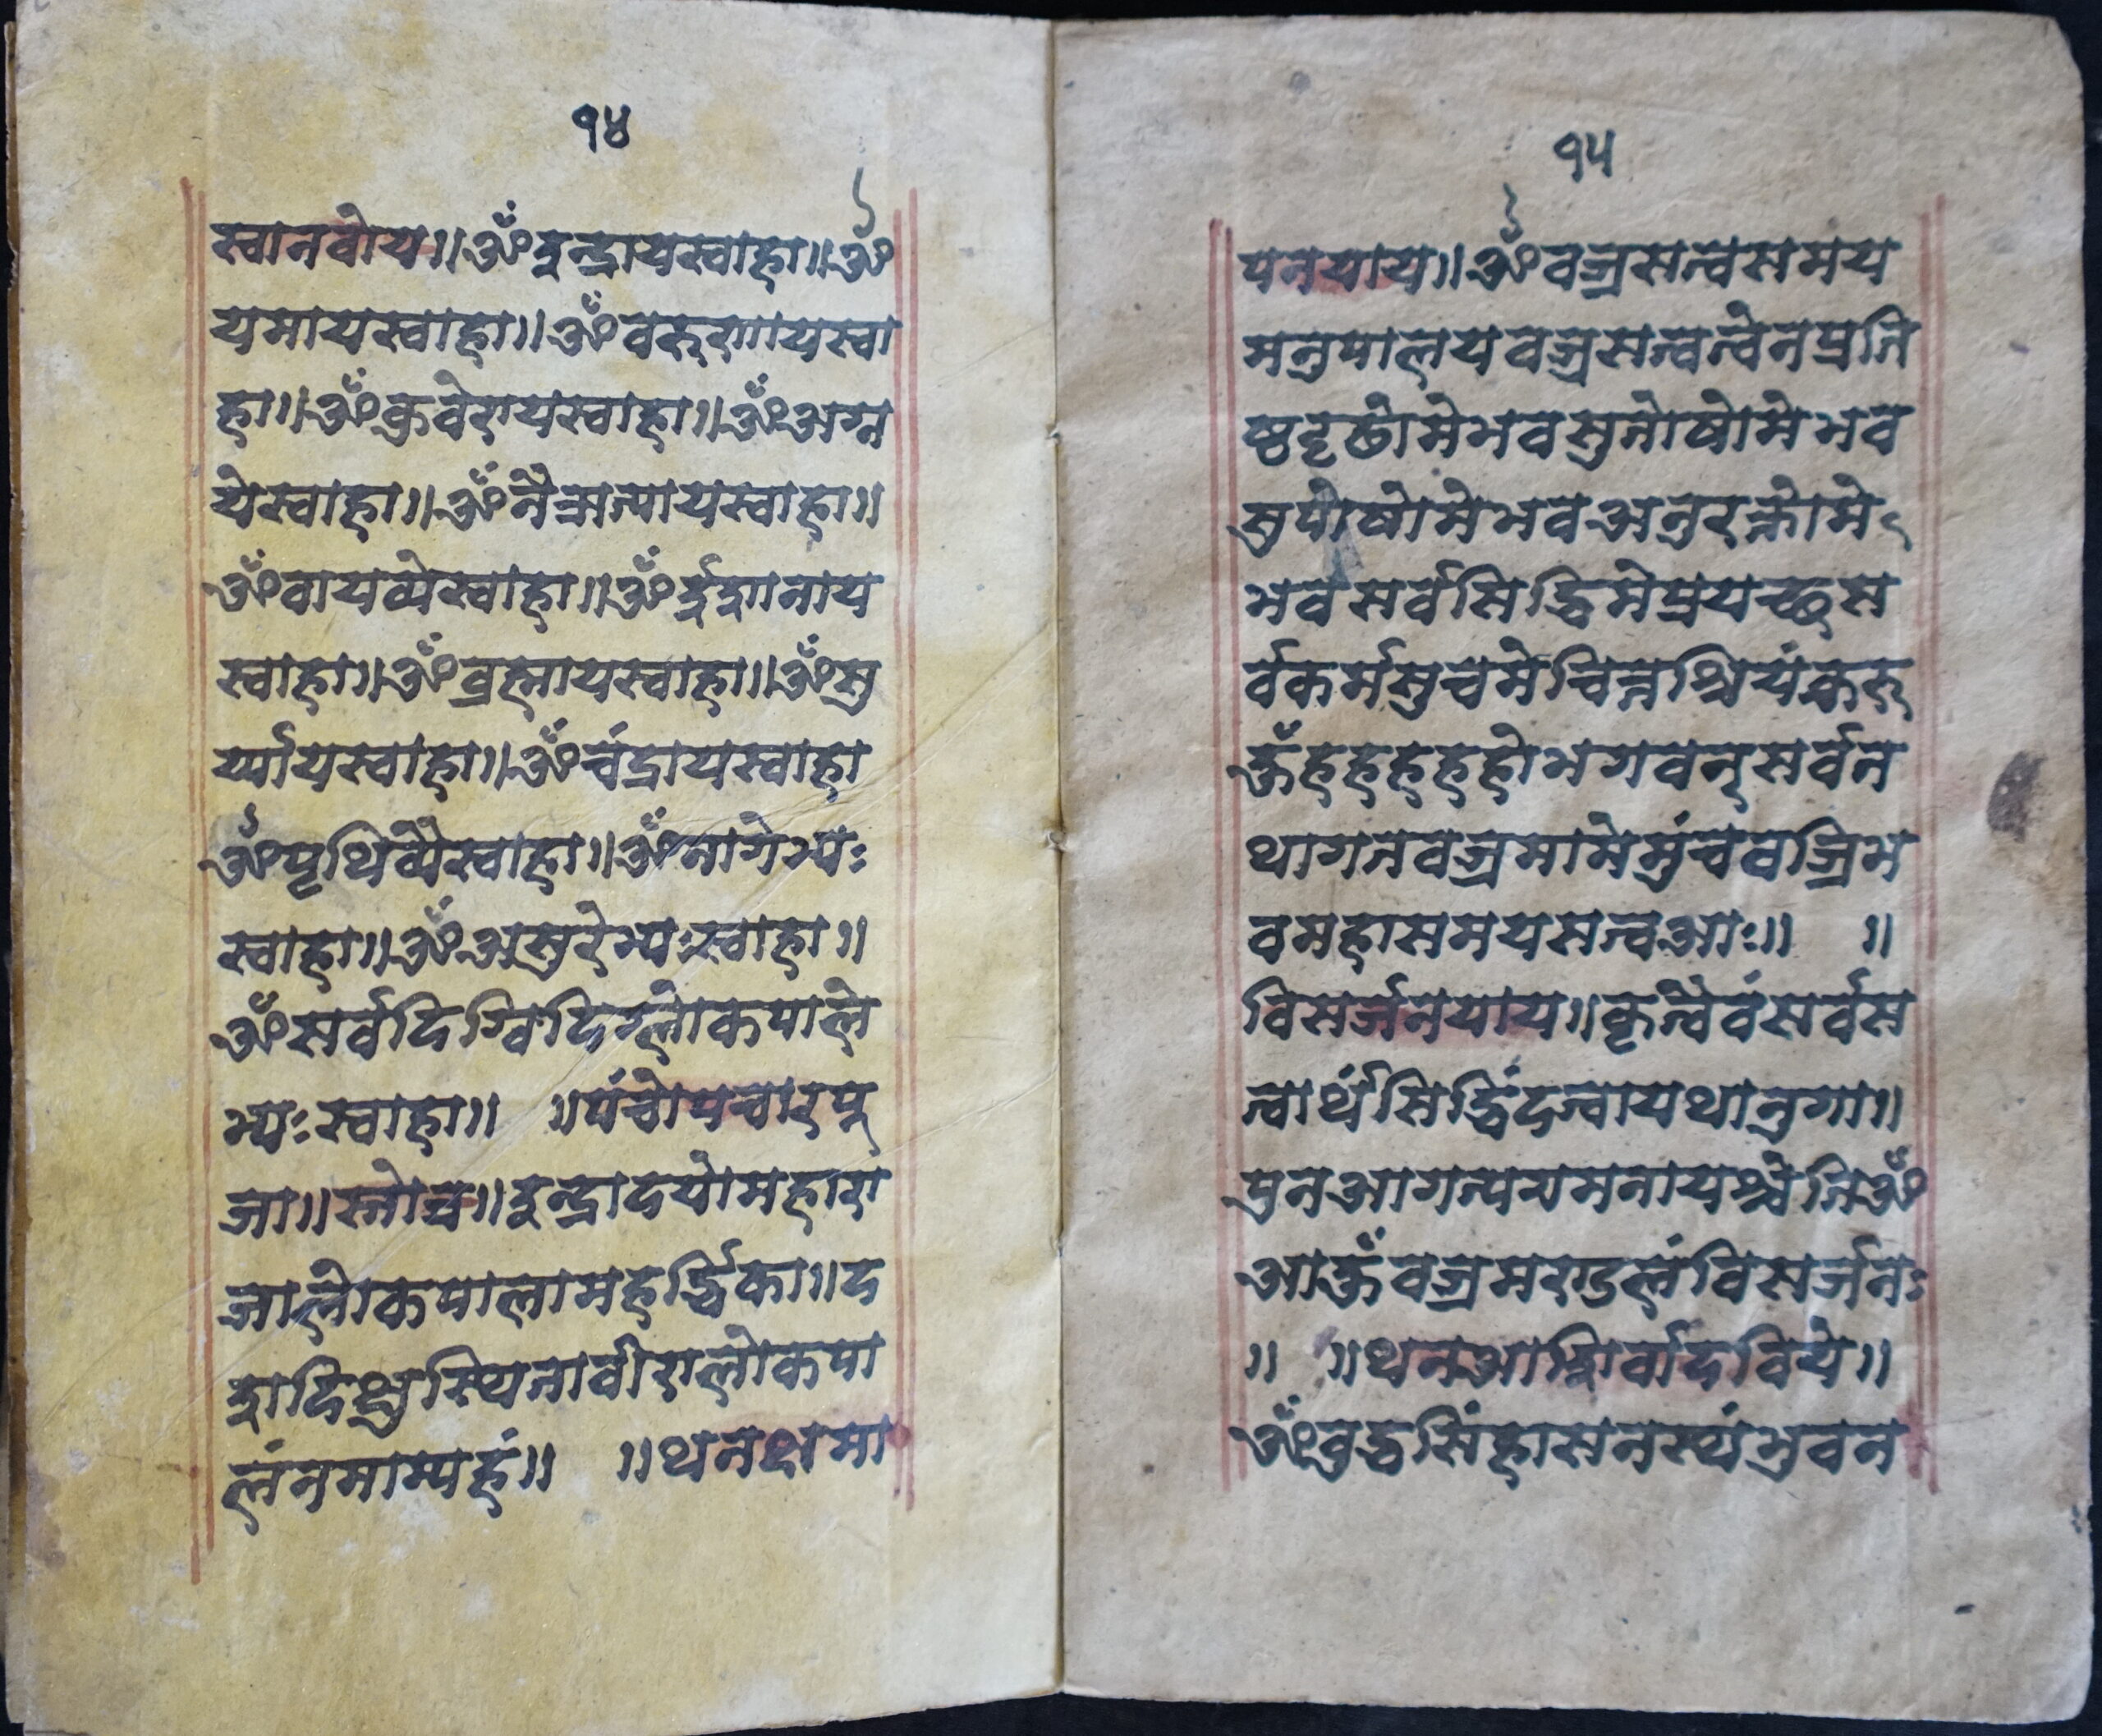 १४
स्वानवोय॥ॐइन्द्रायस्वाहा॥ॐ
यमायस्वाहा॥ॐवरुणायस्वा
हा॥ॐकुवेरायस्वाहा॥ॐअग्न
येस्वाहा॥ॐनैऋत्यायस्वाहा॥
ॐवायव्येस्वाहा॥ॐईशानाय
स्वाहा॥ॐव्रह्मायस्वाहा॥ॐसु
र्य्यायस्वाहा॥ॐचंद्रायस्वाहा
ॐपृथिव्यैस्वाहा॥ॐनागेभ्यः
स्वाहा॥ॐअसुरेभ्यःस्वाहा॥
ॐसर्वदिग्विदिग्लोकपाले
भ्यःस्वाहा॥ ॥पंचोपचारपू
जा॥स्तोत्र॥इन्द्रादयोमहारा
जालोकपालामहर्द्धिका॥द
शदिक्षुस्थितावीरालोकपा
लंनमाम्यहं॥ ॥थनक्षमा
१५
पनयाय॥ॐवज्रसत्वसमय
मनुपालयवज्रसत्वत्वेनप्रति
ष्ठदृढोमेभवसुतोषोमेभव
सुपोषोमेभवअनुरक्तोमे
भवसर्वसिद्धिमेप्रयच्छस
र्वकर्मसुचमेचित्तश्रियंकुरु
ऊँहहहहहोभगवन्सर्वत
थागतवज्रमामेमुंचवज्रिभ
वमहासमयसत्वआः॥ ॥
विसर्जनयाय॥कृत्वैवंसर्वस
त्वार्थंसिद्धिंदत्वायथानुगा॥
पुनआगत्ययमनायश्चेतिॐ
आऊँवज्रमण्डलंविसर्जनः
॥ ॥थनआशिर्वादविये॥
ॐवुद्धसिंहासनस्थंभुवन